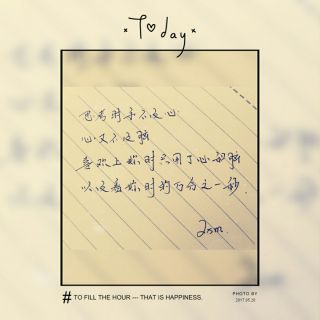 * T♡day *
思考时手不及心
心又不及脑
喜欢上你时只用了心和脑
以及看你时的百分之一秒.
# TO FILL THE HOUR --- THAT IS HAPPINESS.
PHOTO BY
2017.05.20